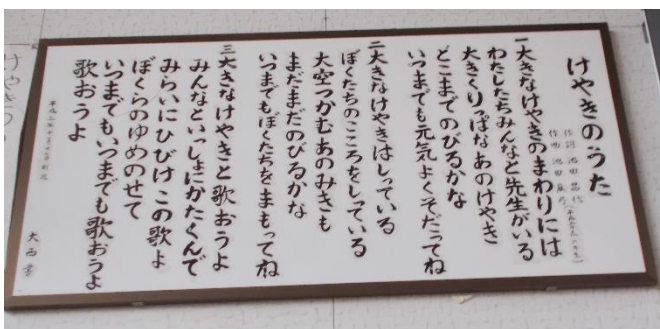 けやきのうた
作詞 池田
作曲 池田
一 大きなけやきのまわりには
わたしたちみんなと先生がいる
大きくりっぱなあのけやき
どこまでのびるかな
いつまでも元気よくそだってね
二 大きなけやきはしっている
ぼくたちのこころをしっている
大空つかむあのみきも
まだまだのびるかな
いつまでもぼくたちをまもってね
三 大きなけやきと歌おうよ
みんなといっしょにかたくんで
みらいにひびけこの歌よ
ぼくらのゆめのせて
いつまでもいつまでも歌おうよ
歌おうよ
大西書
けやきの